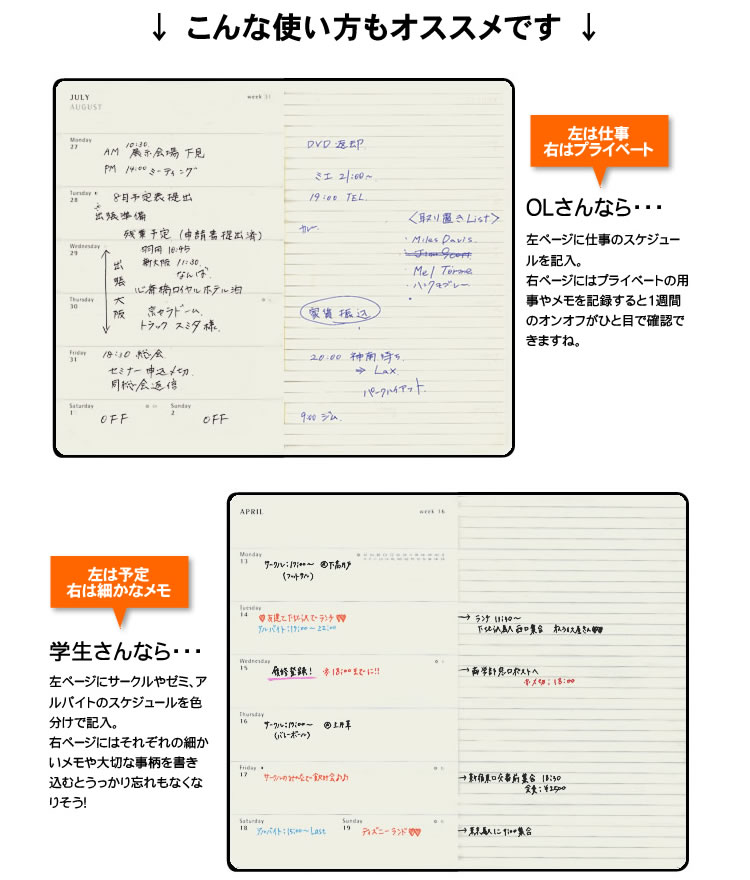 ↓ こんな使い方もオススメです ↓
JULY
AUGUST
week 31
Monday
27
AM 10:30 展示会場 下見
PM 14:00 ミーティング
Tuesday
28
8月予定表提出
出張準備
残業予定 (申請書提出済)
Wednesday
29
羽田 10:45
新大阪 11:30
なんば
心斎橋ロイヤルホテル泊
Thursday
30
出張大阪
京セラドーム
トラック スミダ様
Friday
31
18:10 総会
セミナー申込〆切
返信
Saturday
1
OFF
Sunday
2
OFF
DVD 返却
ミエ 21:00~
19:00 TEL
カレー
<取り置きList>
・Miles Davis
・Mel Torme
家賃振込
20:00 神南待ち
⇒ Lax
パークハイアット
9:00 ジム
左は仕事
右はプライベート
OLさんなら・・・
左ページに仕事のスケジュー
ルを記入。
右ページにはプライベートの用
事やメモを記録すると1週間
のオンオフがひと目で確認で
きますね。
左は予定
右は細かなメモ
学生さんなら・・・
左ページにサークルやゼミ、ア
ルバイトのスケジュールを色
分けで記入。
右ページにはそれぞれの細か
いメモや大切な事柄を書き
込むとうっかり忘れもなくな
りそう!
APRIL
week 16
Monday
13
サークル:19:00~ @下高井戸
(フットサル)
Tuesday
14
♡友達と下北沢でランチ♡♡
アルバイト:17:00~22:00
→ ランチ 11:30~
下北沢駅西口集合
Wednesday
15
履修登録! ※18:00までに!!
→ 商学部窓口ポストへ
※〆切:18:00
Thursday
16
サークル:19:00~
(バレーボール)
Friday
17
サークルのみんなで飲み会♪♪
→ 新宿東口交番前集合 18:30
会費:¥2500
Saturday
18
アルバイト:15:00~Last
Sunday
19
ディズニーランド♡♡
→ 東京駅に9:00集合